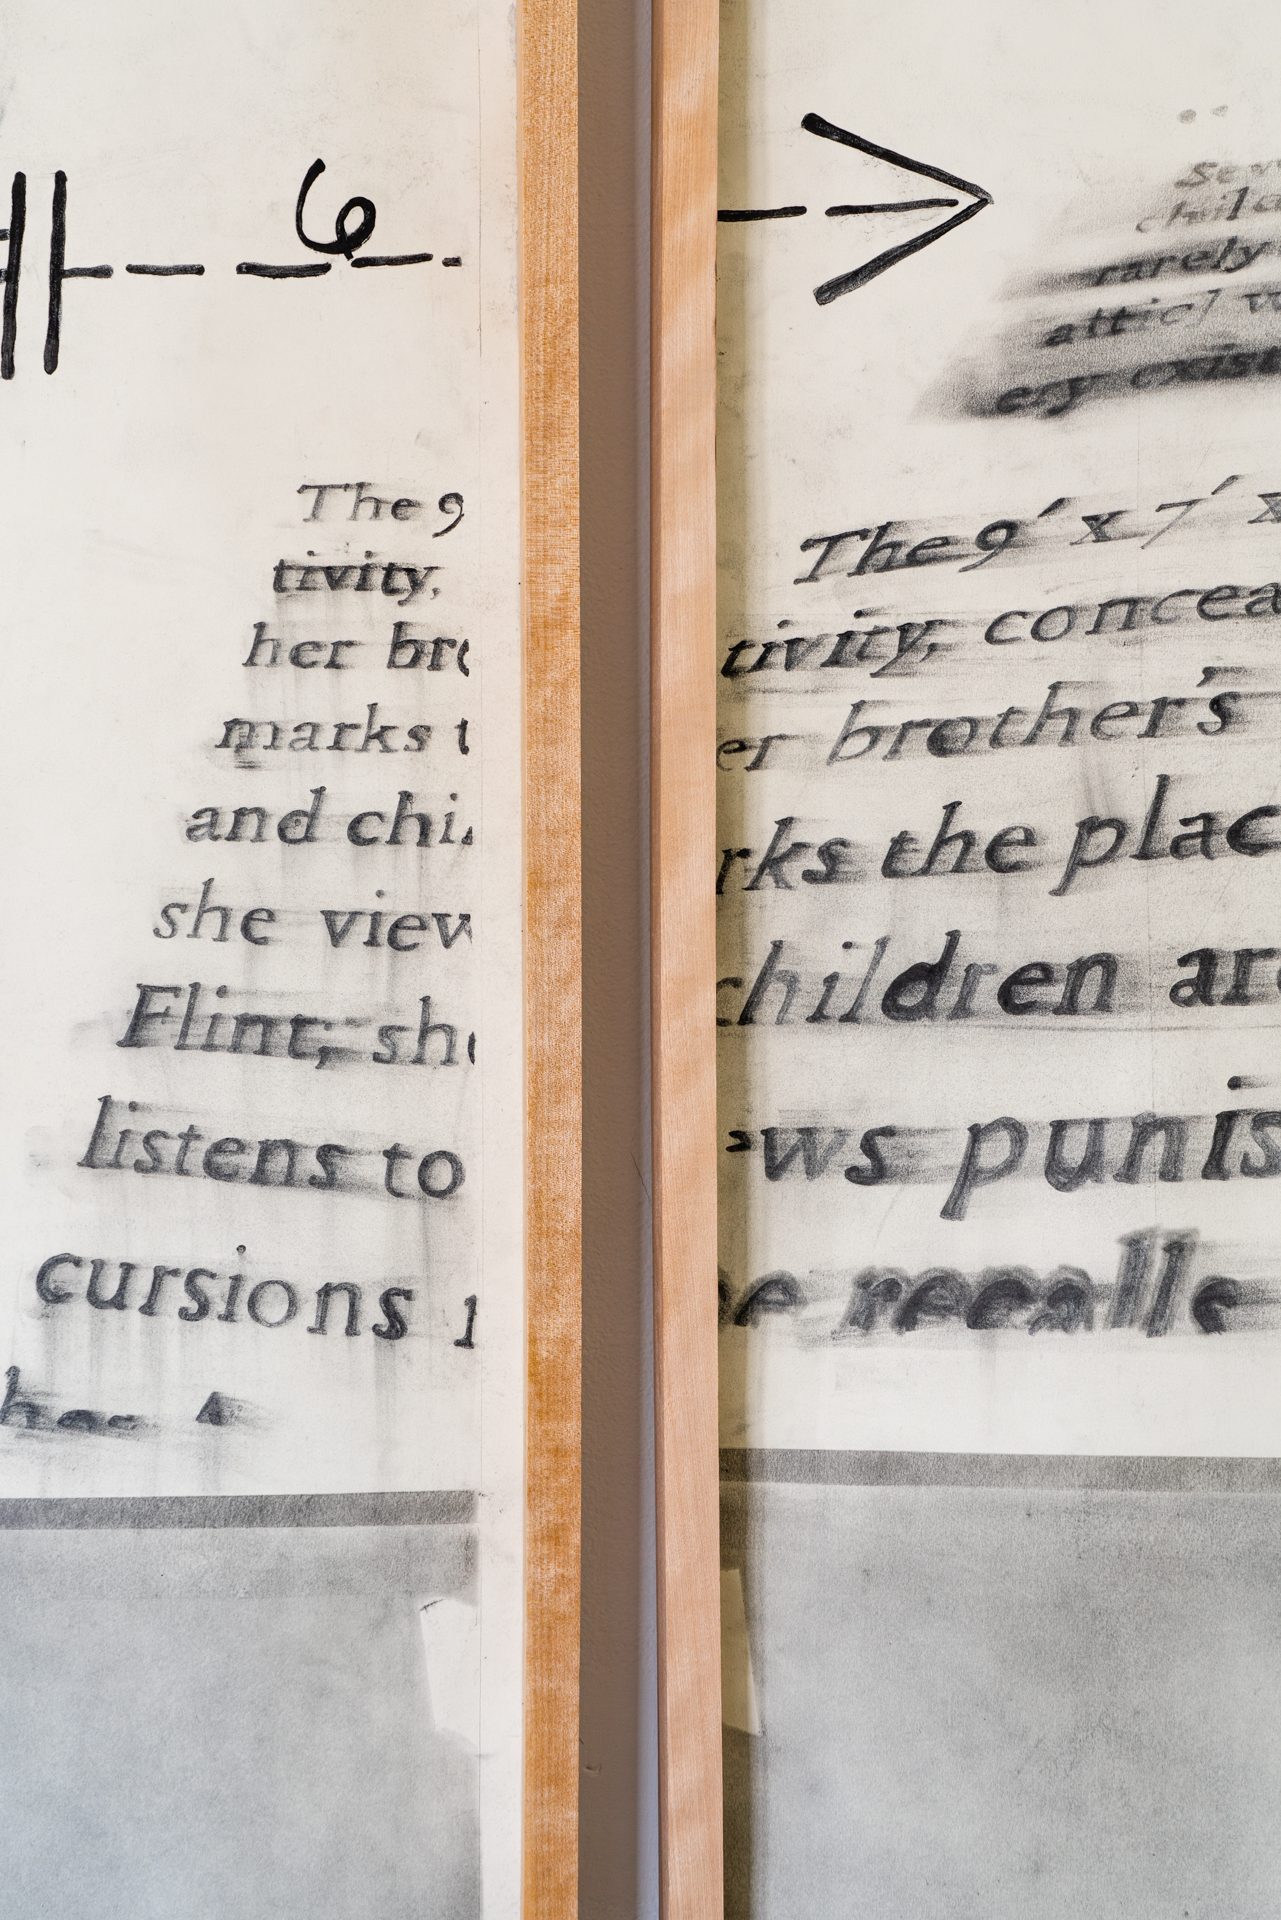 6
The 9
tivity,
her bro
marks t
and chi
she view
Flint, she
listens to
cursions 1
child
rarely
attic/ w
ery exist
The 9' x 7' x
tivity, concea
er brother's
rks the plac
children are
ws punis
e recalls